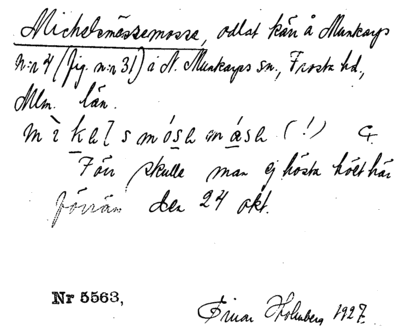 Michelsmässemosse, odlat kärr å Munkarps
N:r 4 (fig. n:r 31) å N. Munkarps sn., Frosta hd.,
Mlm. län.
mìkəlsmósamåsa (!) C.
Förr skulle man ej hösta höet här
förrän den 24 okt.
Nr 5563,
Einar Holmberg 1927.